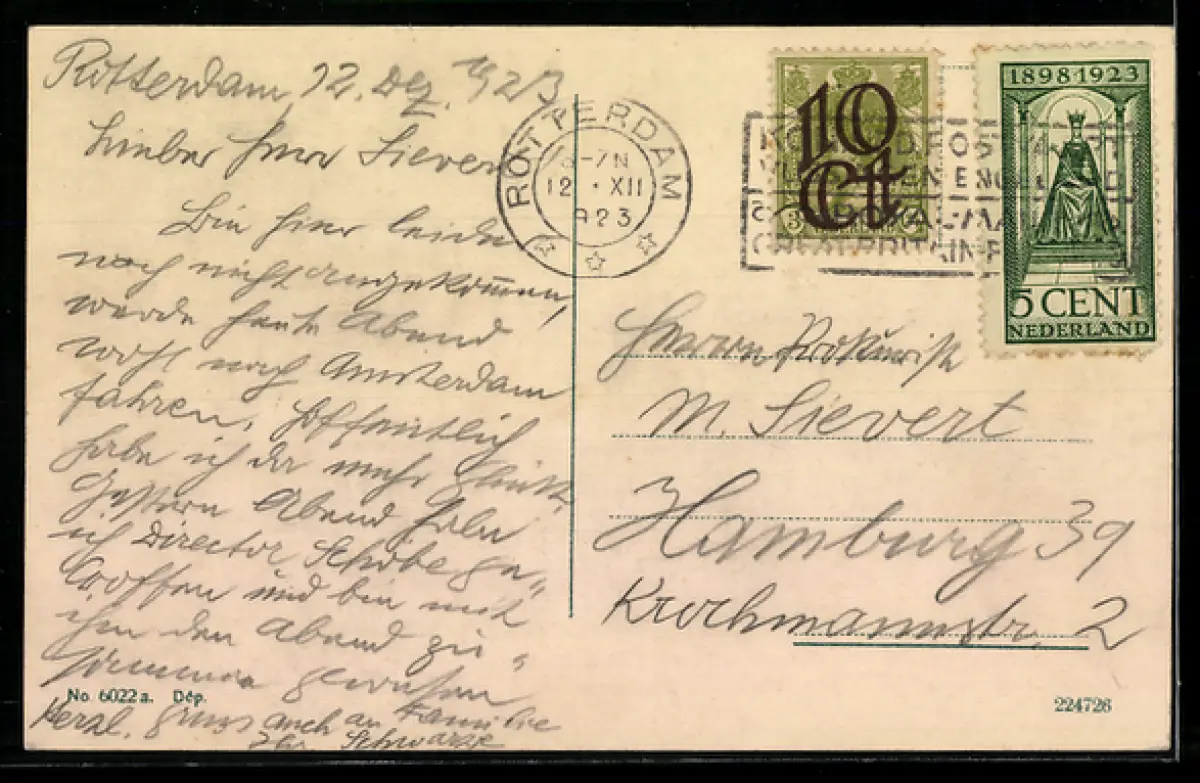 Rotterdam, 12. Dez. 1923
Lieber Herr Sievert
Bin hier leider
noch nicht angekommen,
werde heute Abend
wohl nach Amsterdam
fahren. Hoffentlich
habe ich da mehr Glück.
Gestern Abend habe
ich Director Schöbe ge„
troffen und bin mit
ihm den Abend zu„
sammen gewesen
Herzl. Gruss auch an Familie
Ihr Schwarze
No 6022a. Dép.
ROTTERDAM
-7N
12 · XII
923
10
Ct
1898 1923
5 CENT
NEDERLAND
ROYAL-MA
GREAT-BRITAIN-
Herrn Prokurist
M. Sievert
Hamburg 39
Krochmannstr. 2
224726